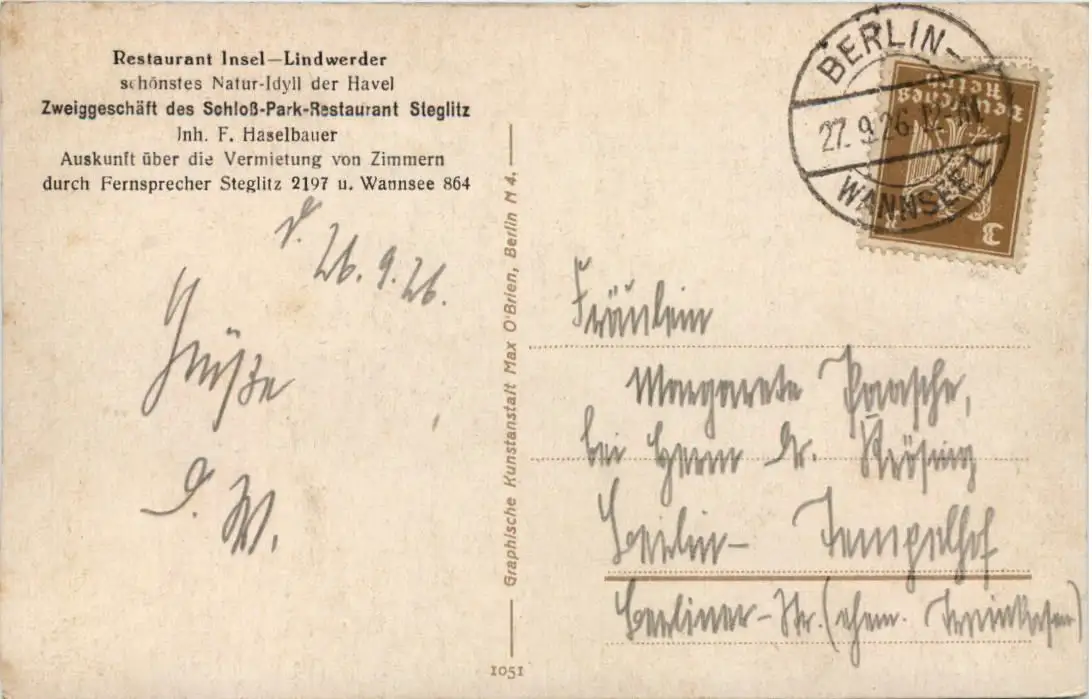 Restaurant Insel—Lindwerder
schönstes Natur-Idyll der Havel
Zweiggeschäft des Schloß-Park-Restaurant Steglitz
Inh. F. Haselbauer
Auskunft über die Vermietung von Zimmern
durch Fernsprecher Steglitz 2197 u. Wannsee 864
d. 26.9.26.
Grüße
D. W.
Graphische Kunstanstalt Max O'Brien, Berlin N 4.
1051
BERLIN-
27.9.26.12-1N.
WANNSEE 1
Deutsches
Reich
3
Fräulein
Margarete Paasche,
bei Herrn Dr.
Berlin- Tempelhof
Berliner-Str. (ehem.